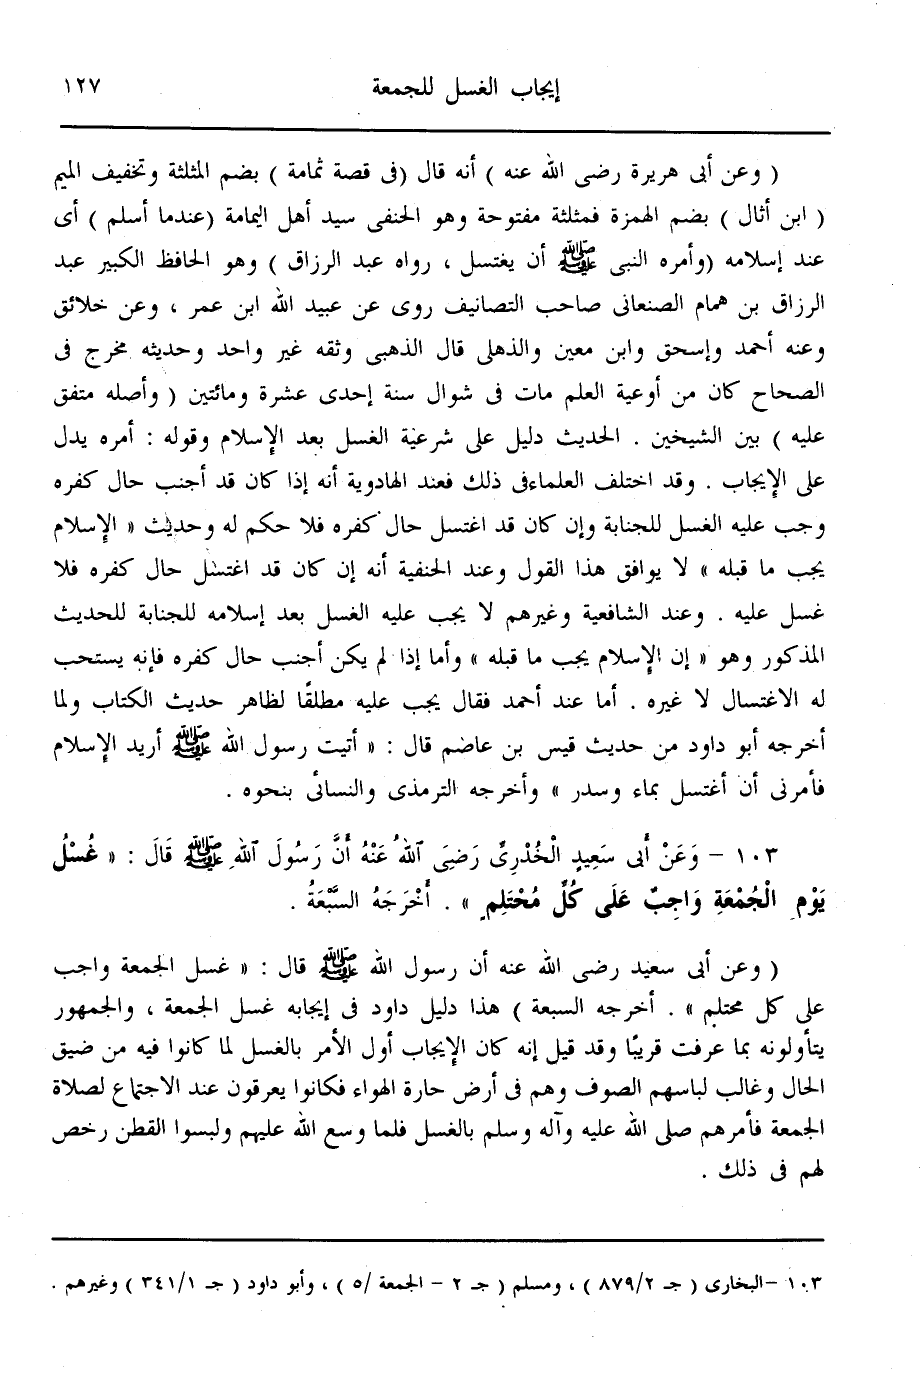 إيجاب الغسل للجمعة ١٢٧
( وعن أبى هريرة رضى الله عنه ) أنه قال (فى قصة ثمامة ) بضم المثلثة وتخفيف الميم
( ابن أثال ) بضم الهمزة فمثلثة مفتوحة وهو الحنفى سيد أهل اليمامة (عندما أسلم ) أى
عند إسلامه (وأمره النبى ﷺ أن يغتسل ، رواه عبد الرزاق ) وهو الحافظ الكبير عبد
الرزاق بن همام الصنعانى صاحب التصانيف روى عن عبيد الله ابن عمر ، وعن خلائق
وعنه أحمد وإسحق وابن معين والذهلى قال الذهبى وثقه غير واحد وحديثه مخرج فى
الصحاح كان من أوعية العلم مات فى شوال سنة إحدى عشرة ومائتين ( وأصله متفق
عليه ) بين الشيخين . الحديث دليل على شرعية الغسل بعد الإسلام وقوله : أمره يدل
على الإيجاب . وقد اختلف العلماءفى ذلك فعند الهادوية أنه إذا كان قد أجنب حال كفره
وجب عليه الغسل للجنابة وإن كان قد اغتسل حال كفره فلا حكم له وحديث « الإسلام
يجب ما قبله » لا يوافق هذا القول وعند الحنفية أنه إن كان قد اغتسل حال كفره فلا
غسل عليه . وعند الشافعية وغيرهم لا يجب عليه الغسل بعد إسلامه للجنابة للحديث
المذكور وهو « إن الإسلام يجب ما قبله » وأما إذا لم يكن أجنب حال كفره فإنه يستحب
له الاغتسال لا غيره . أما عند أحمد فقال يجب عليه مطلقًا لظاهر حديث الكتاب ولما
أخرجه أبو داود من حديث قيس بن عاصم قال : « أتيت رسول الله ﷺ أريد الإسلام
فأمرنى أن أغتسل بماء وسدر » وأخرجه الترمذى والنسائى بنحوه .
١٠٣ – وَعَنْ أَبى سَعِيدٍ الْخُدْرِىِّ رَضِىَ ٱللهُ عَنْهُ أَنَّ رَسُولَ ٱللهِ ﷺ قَالَ : « غُسْلُ
يَوْمِ الْجُمْعَةِ وَاجِبٌ عَلَى كُلِّ مُحْتَلِمٍ » . أَخْرَجَهُ السَّبْعَةُ .
( وعن أبى سعيد رضى الله عنه أن رسول الله ﷺ قال : « غسل الجمعة واجب
على كل محتلم » . أخرجه السبعة ) هذا دليل داود فى إيجابه غسل الجمعة ، والجمهور
يتأولونه بما عرفت قريبًا وقد قيل إنه كان الإيجاب أول الأمر بالغسل لما كانوا فيه من ضيق
الحال وغالب لباسهم الصوف وهم فى أرض حارة الهواء فكانوا يعرقون عند الاجتماع لصلاة
الجمعة فأمرهم صلى الله عليه وآله وسلم بالغسل فلما وسع الله عليهم ولبسوا القطن رخص
لهم فى ذلك .
١٠٣ –البخارى ( جـ ٨٧٩/٢ ) ، ومسلم ( جـ ٢ – الجمعة /٥ ) ، وأبو داود ( جـ ٣٤١/١ ) وغيرهم .